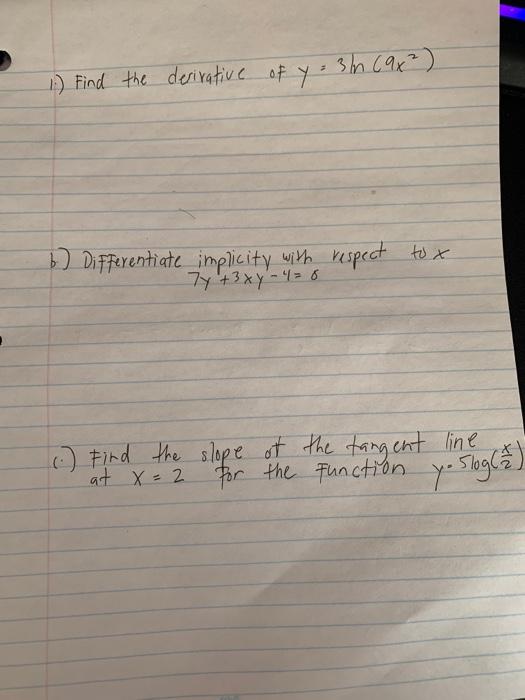 1.) Find the derivative of y = 3ln(9x²)
b.) Differentiate implicity with respect to x
7y + 3xy - 4 = 8
c.) Find the slope of the tangent line
at x = 2 for the function y = 5log(x/2)